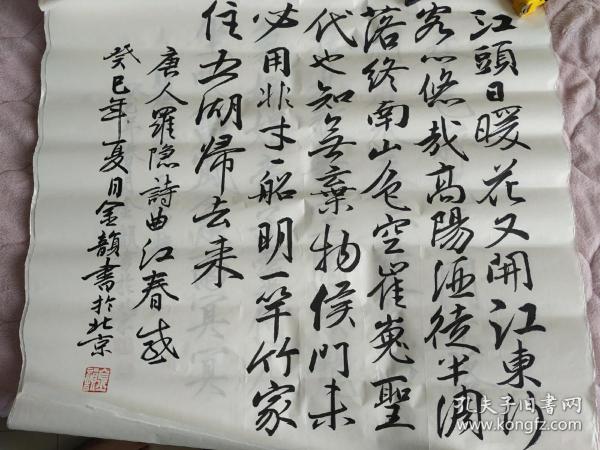 江頭日暖花又開江東行
客心悠哉高陽酒徒半凋
落終南山色空崔嵬聖
代也知無棄物侯門未
必用非才一船明一竿竹家
住五湖歸去来
唐人羅隐詩曲江春感
癸巳年夏月金韻書於北京
孔夫子旧书网
www.kongfz.com